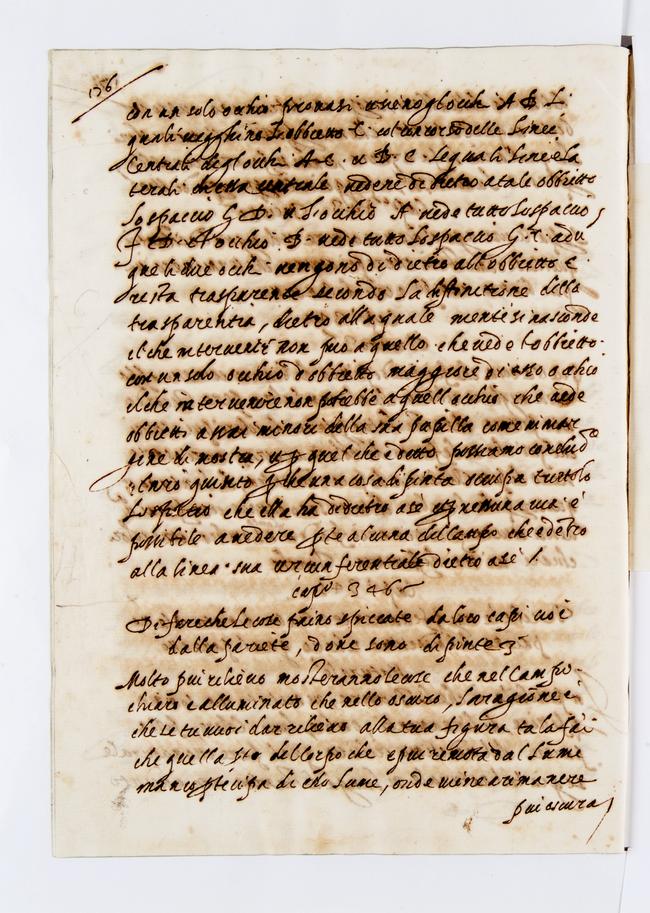 156
con un solo ochio pronasi sieno gl'ochi A B Li
quali uegghino l'obbietto C col concorso delle Linee
Centrali degl'ochi A C. et B C. Lequali Linee la
terali centrale uedere di dietro a tale obbietto
Lo spaccio G D. et L'ochio A uede tutto Lo spaccio
F D. et l'ochio B. uede tutto Lo spaccio G adu
que li due ochi uengono di dietro all'obbietto C
resta trasparente secondo La difinitione della
trasparentia, dietro alla quale niente si nasconde
il che interuenir non puo a quello che uede l'obbietto
con un solo ochio d'obbietto maggiore di esso ochio
il che interuenire non potrebbe a quell'ochio che uede
obbietti assai minori della sua pupilla come in mar
gine si mostra, et p quel che e detto possiamo conclud
che una cosa dipinta ocupa tutto lo
Lo spatio che ella ha dietro a se et p nessuna uia e
possibile a uedere pte alcuna del campo che e dietro
alla linea sua circunferentiale dietro a se /.
cap.º 346
Di fare che le cose paino spiccate da loro capi cioè
dalla pariete, doue sono dipinte
Molto piu rilieuo mosteranno le cose che nel campo
chiaro e alluminato che nello oscuro, La ragione e
che se tu uuoi dar rilieuo alla tua figura tu la fai
che quella pte del corpo che e piu remota dal Lume
manco ptecipa di esso Lume, onde uiene a rimanere
piu oscura